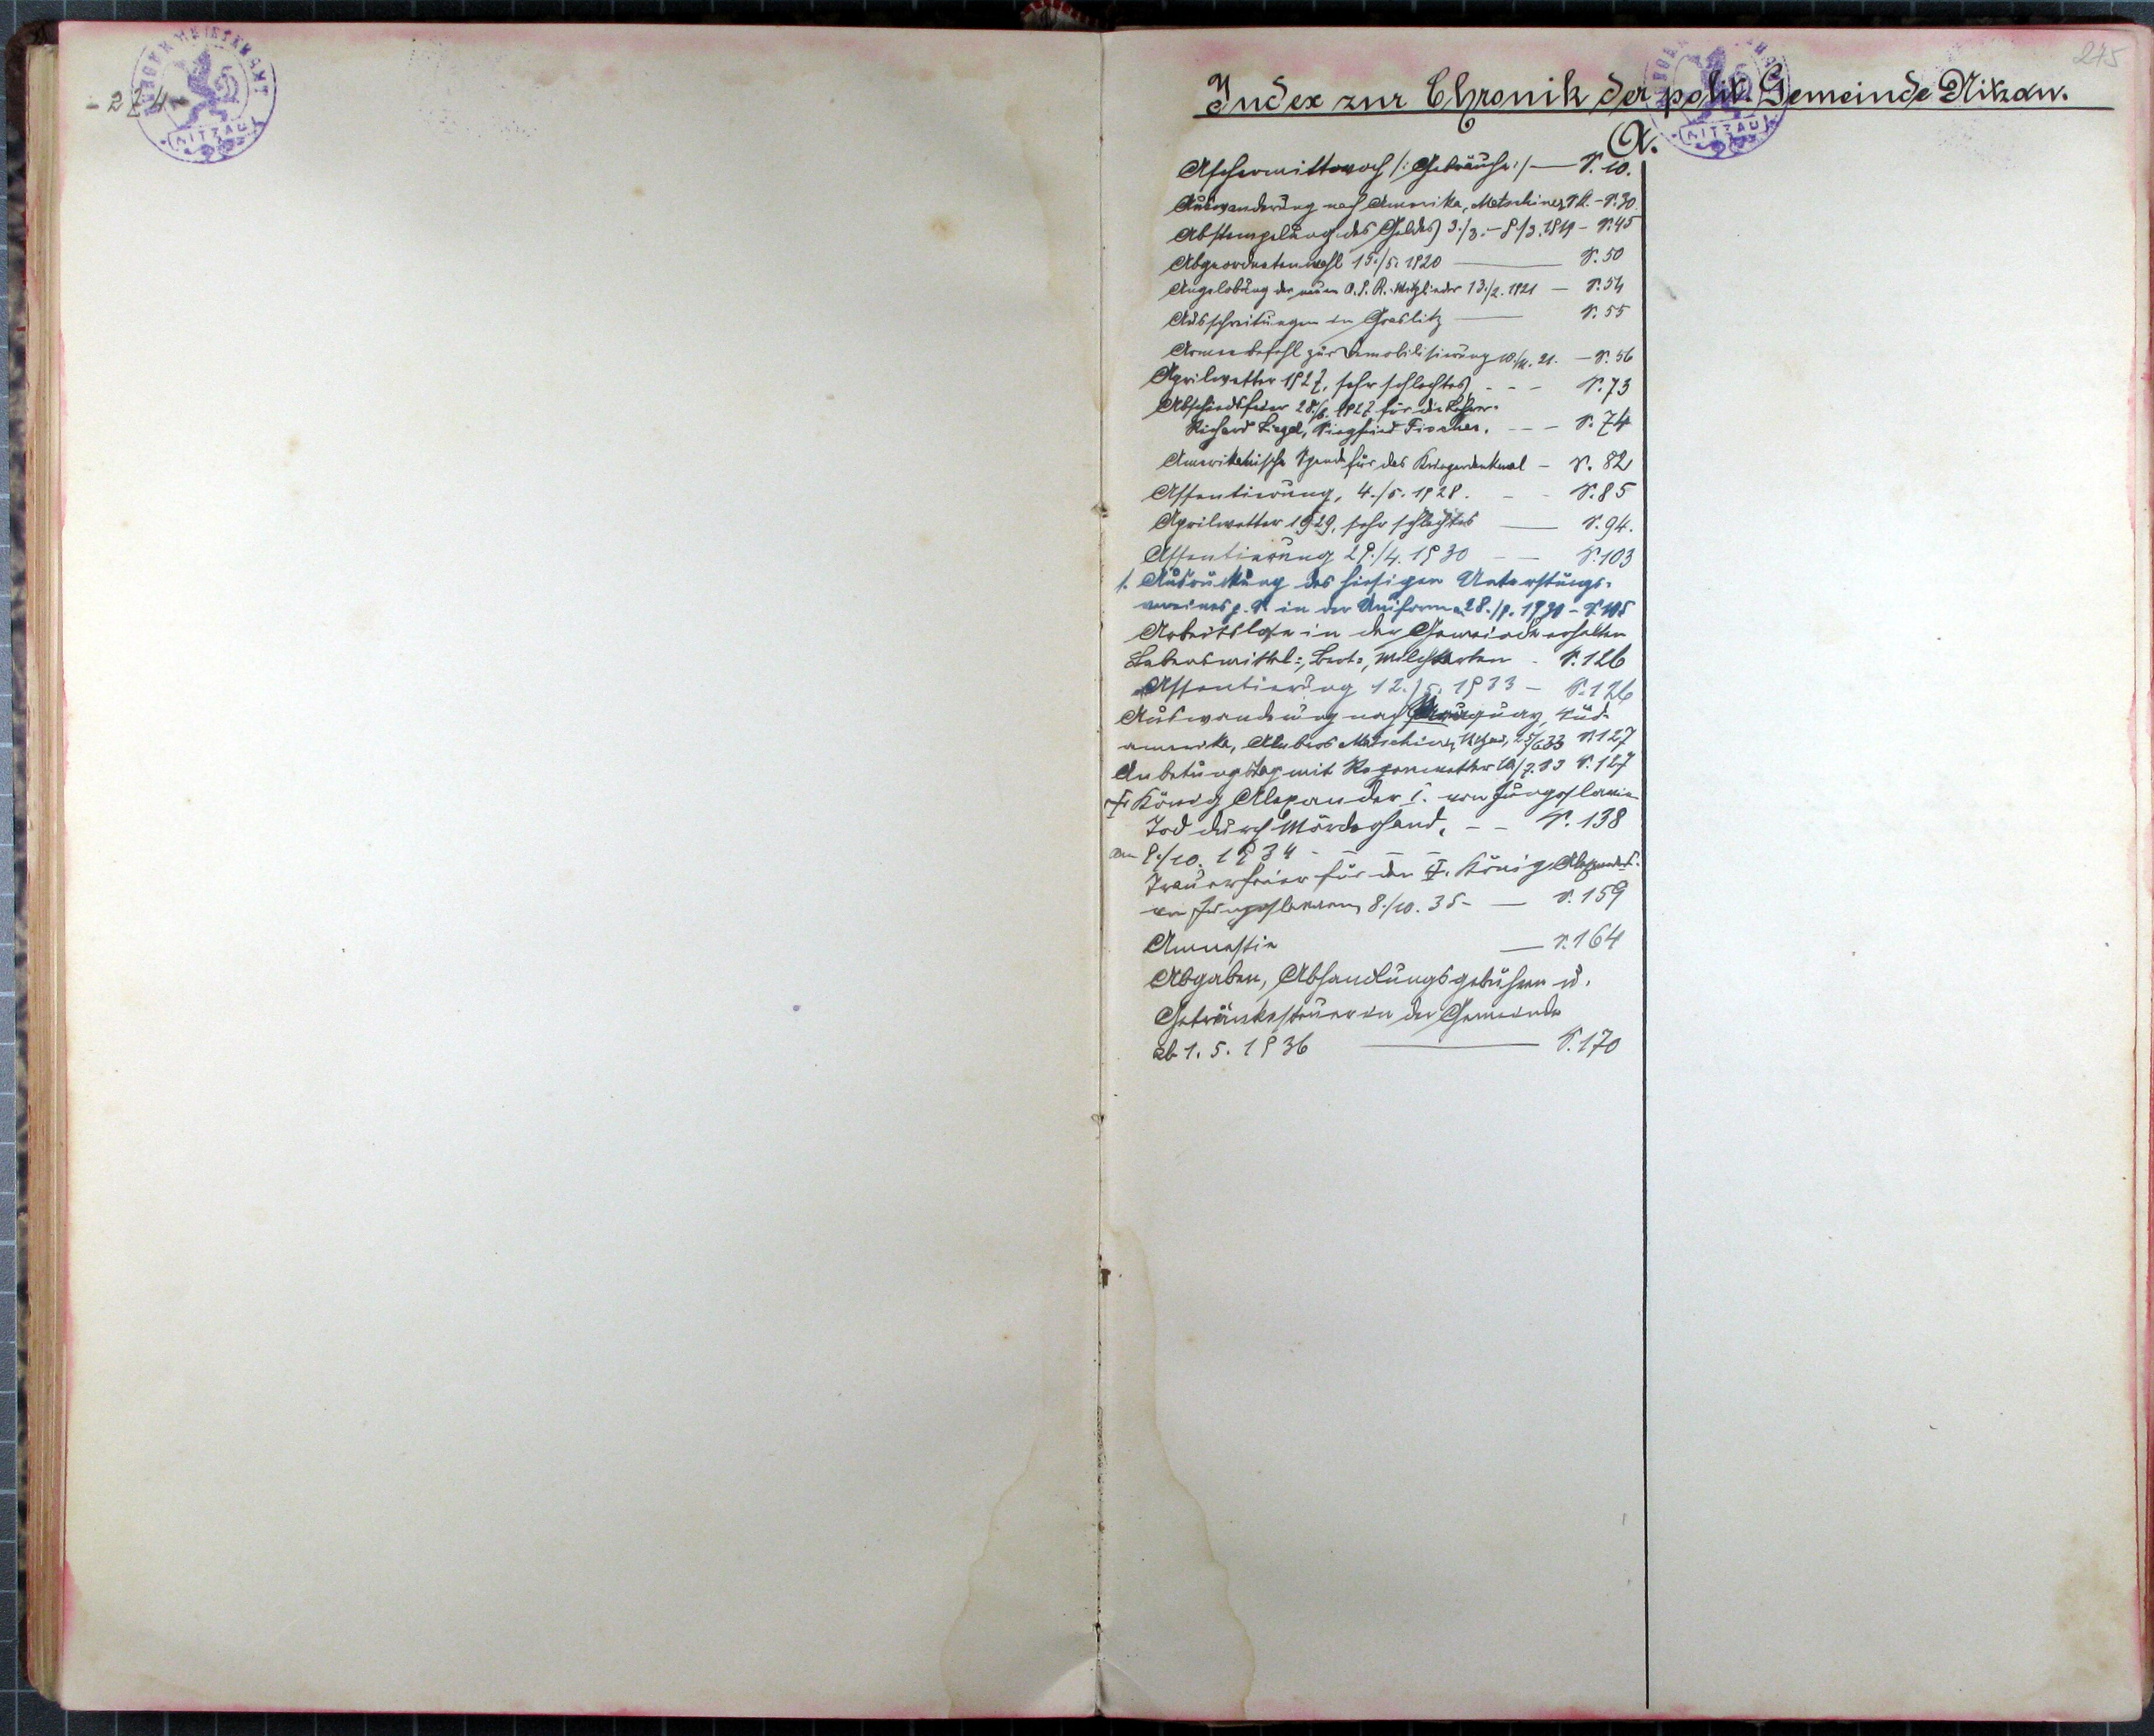 - 274 -
NITZAU
275
Index zur Chronik der polit. Gemeinde Nitzau.
NITZAU
A.
Aschermittwoch /: Gebräuche :/ — S. 10.
Auswanderung nach Amerika, Metschiner, S. 30.
Abstempelung des Geldes 3./3. – 8./3. 1919 – S. 45
Abgeordnetenwahl 15./5. 1920 — S. 50
Angelobung der neuen O. S. R. Mitglieder 13./2. 1921 — S. 54
Ausschreitungen in Graslitz — S. 55
Armeebefehl zur Demobilisierung 21. — S. 56
Aprilwetter 1927, sehr schlechtes - - - S. 73
Abschiedsfeier 28./8. 1927 für die Lehrer
Richard Siegel, Siegfried Fischer. - - - S. 74
Amerikanische Spende für das Kriegerdenkmal – S. 82
Assentierung, 4./5. 1928. - - S. 85
Aprilwetter 1929, sehr schlechtes — S. 94.
Assentierung 29./4. 1930 — — S. 103
1. Ausrückung des hiesigen Unterstützungs-
vereines in der Uniform 28./9. 1930 – S. 105
Arbeitslose in der Gemeinde erhalten
Lebensmittel-, Brot-, Milchkarten - S. 126
Assentierung 12./5. 1933 – S. 126
Auswanderung nach Uruguay, Süd-
amerika, Metschiner, 25/6 33 S. 127
Anbetungstag mit Regenwetter /7. 33 S. 127
†. König Alexander I. von Jungoslavien
Tod durch Mörderhand. - - S. 138
am 9./10. 1934 - - - -
Trauerfeier für den †. König Alexander
von Jungoslavien 8./10. 35 - — S. 159
Amnestie — S. 164
Abgaben, Abhandlungsgebühren u.
Getränkesteuer in der Gemeinde
ab 1. 5. 1936 — S. 170